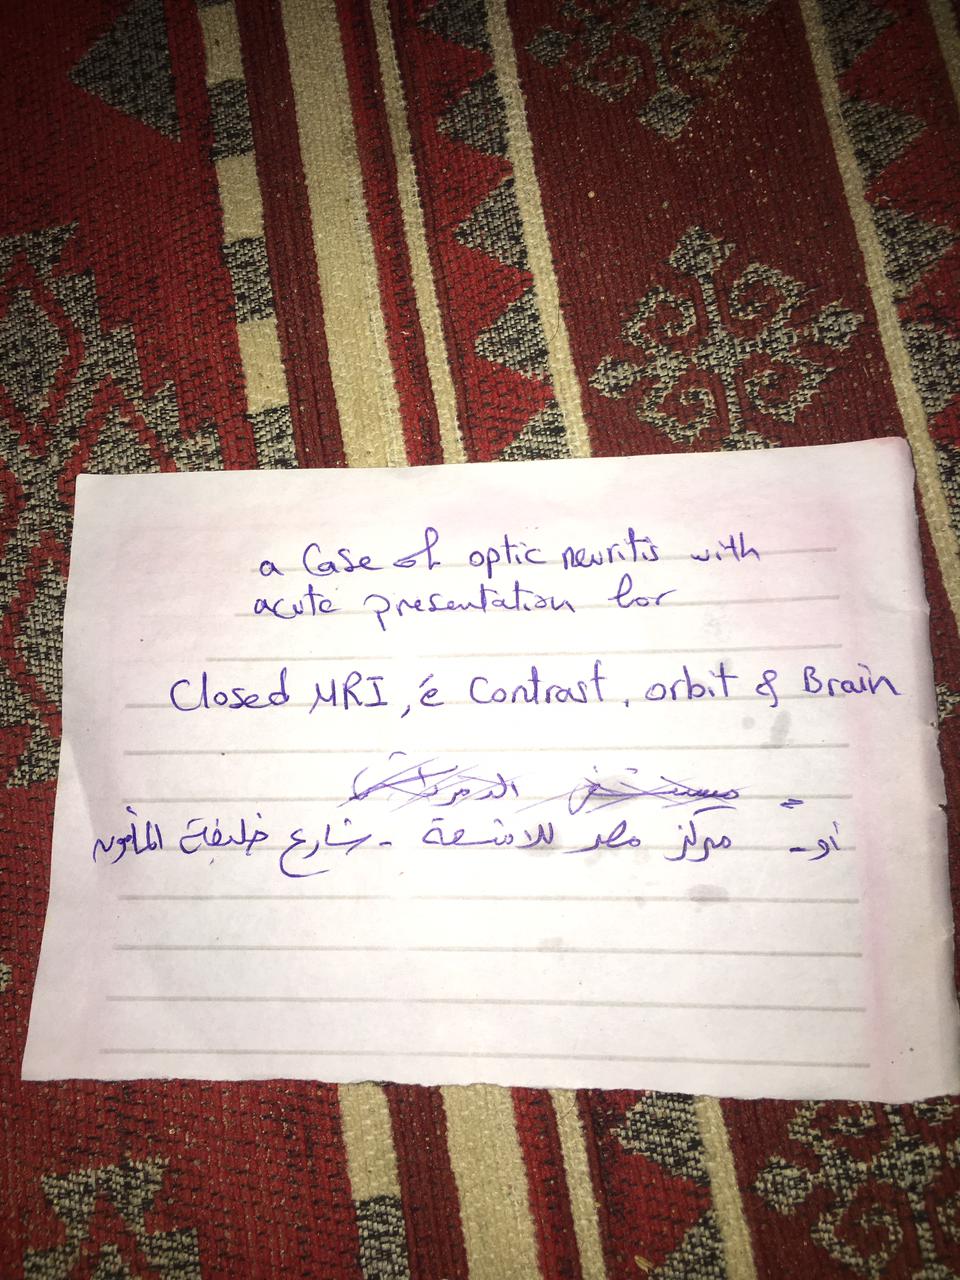 a Case of optic neuritis with
acute presentation for
Closed MRI, é Contrast, orbit & Brain
= مستشفى الدمرداش
أو - مركز مصر للاشعة - شارع خليفة المأمون